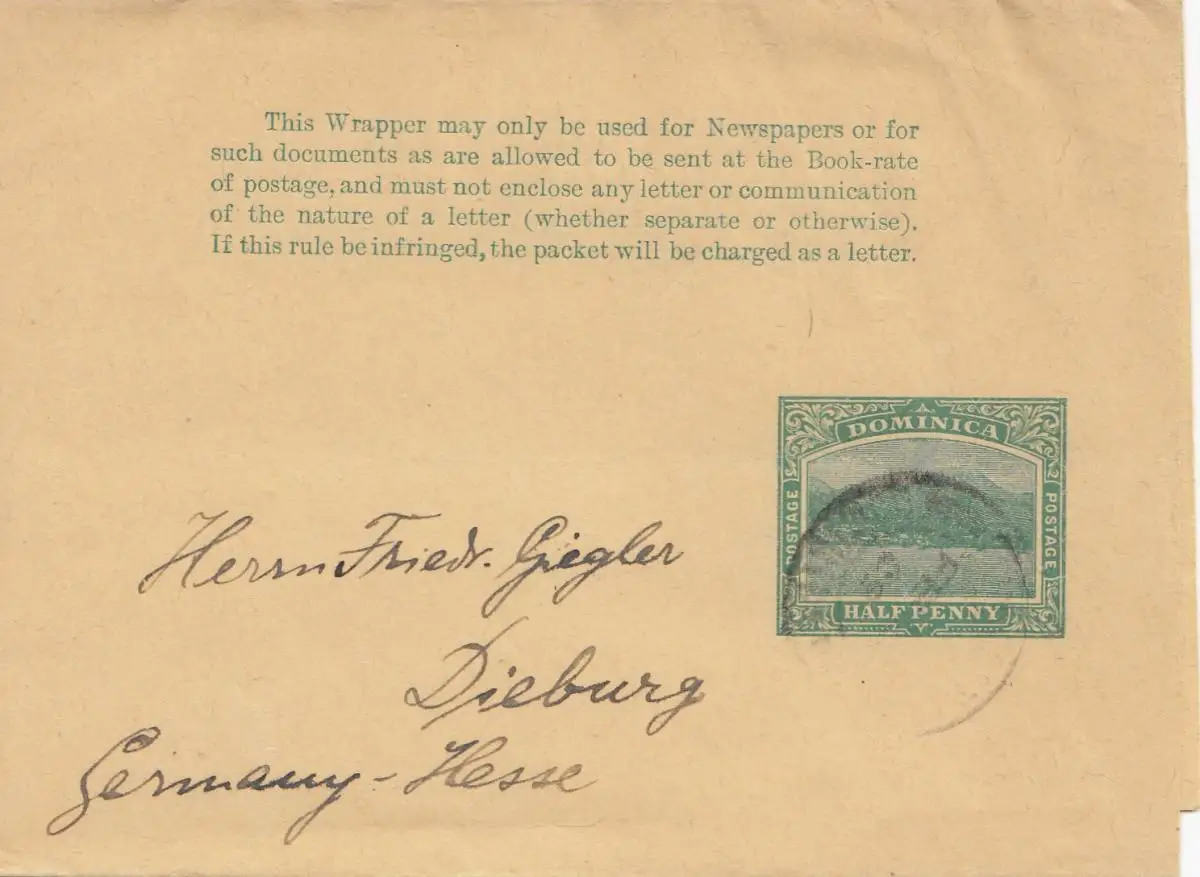 This Wrapper may only be used for Newspapers or for
such documents as are allowed to be sent at the Book-rate
of postage, and must not enclose any letter or communication
of the nature of a letter (whether separate or otherwise).
If this rule be infringed, the packet will be charged as a letter.
DOMINICA
POSTAGE
POSTAGE
HALFPENNY
Herrn Friedr. Giegler
Dieburg
Germany - Hesse